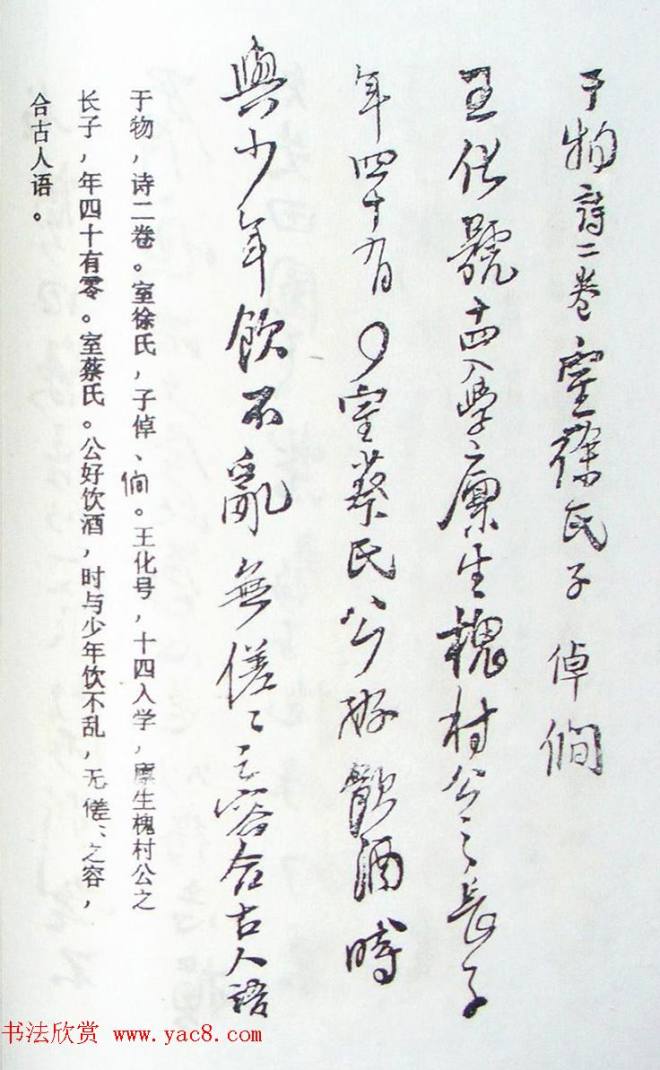 于物詩二卷室徐氏子倬僩
王化號十四入學廩生槐村公之長子
年四十有〇室蔡氏公好飲酒時
與少年飲不亂無傞〻之容合古人語
于物，诗二卷。室徐氏，子倬、僩。王化号，十四入学，廪生槐村公之
长子，年四十有零。室蔡氏。公好饮酒，时与少年饮不乱，无傞、之容，
合古人语。
书法欣赏 www.yac8.com